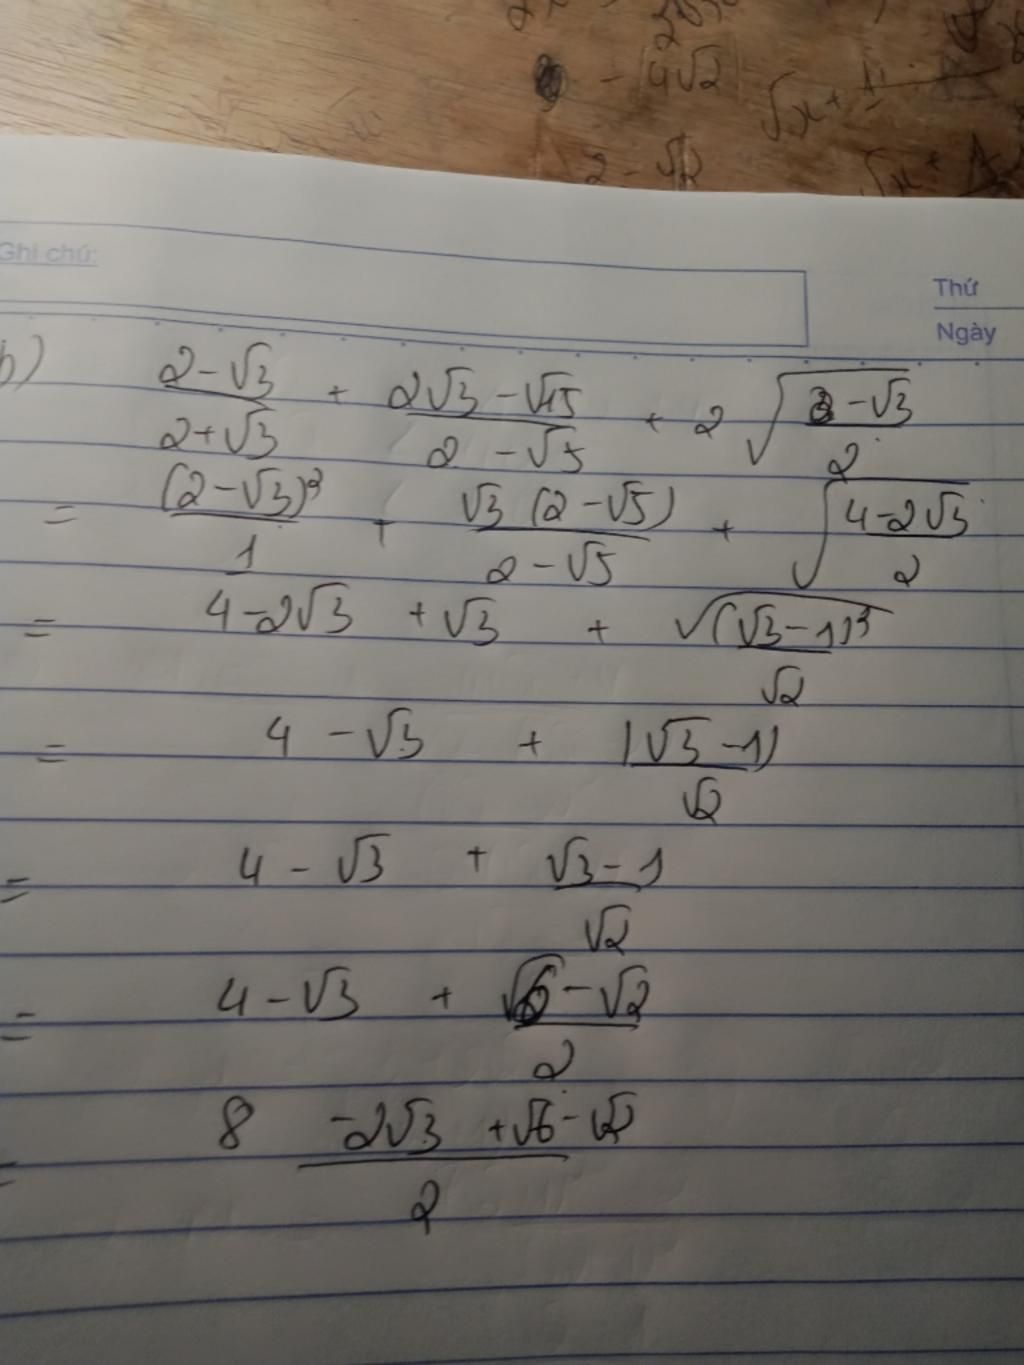 - 4√2
√x +
2 - √2
√x +
Ghi chú:
Thứ
Ngày
b) (2-√3)/(2+√3) + (2√3-√15)/(2-√5) + 2√((2-√3)/2)
= (2-√3)²/1 + √3(2-√5)/(2-√5) + √((4-2√3)/2)
= 4-2√3 + √3 + √(√3-1)²/√2
= 4 - √3 + |√3-1|/√2
= 4 - √3 + (√3-1)/√2
= 4 - √3 + (√6-√2)/2
= (8 -2√3 +√6 -√2)/2